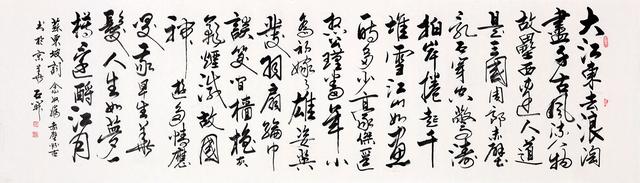 大江東去浪淘
盡千古風流人物
故壘西邊人道
是三國周郎赤壁
亂石穿空驚濤
拍岸捲起千
堆雪江山如畫
一時多少豪傑遥
想公瑾當年小
喬初嫁了雄姿英
發羽扇綸巾
談笑間檣櫓灰
飛煙滅故國
神遊多情應
笑我早生華
髮人生如夢一
樽還酹江月
蘇東坡詞念奴嬌赤壁懷古
書於京華